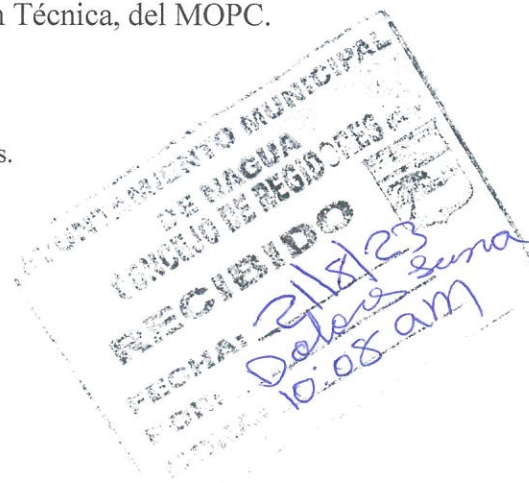 n Técnica, del MOPC.
s.
AYUNTAMIENTO MUNICIPAL
DE NAGUA
CONCEJO DE REGIDORES
RECIBIDO
FECHA: 2/8/23
POR: Dolores
10:08 am